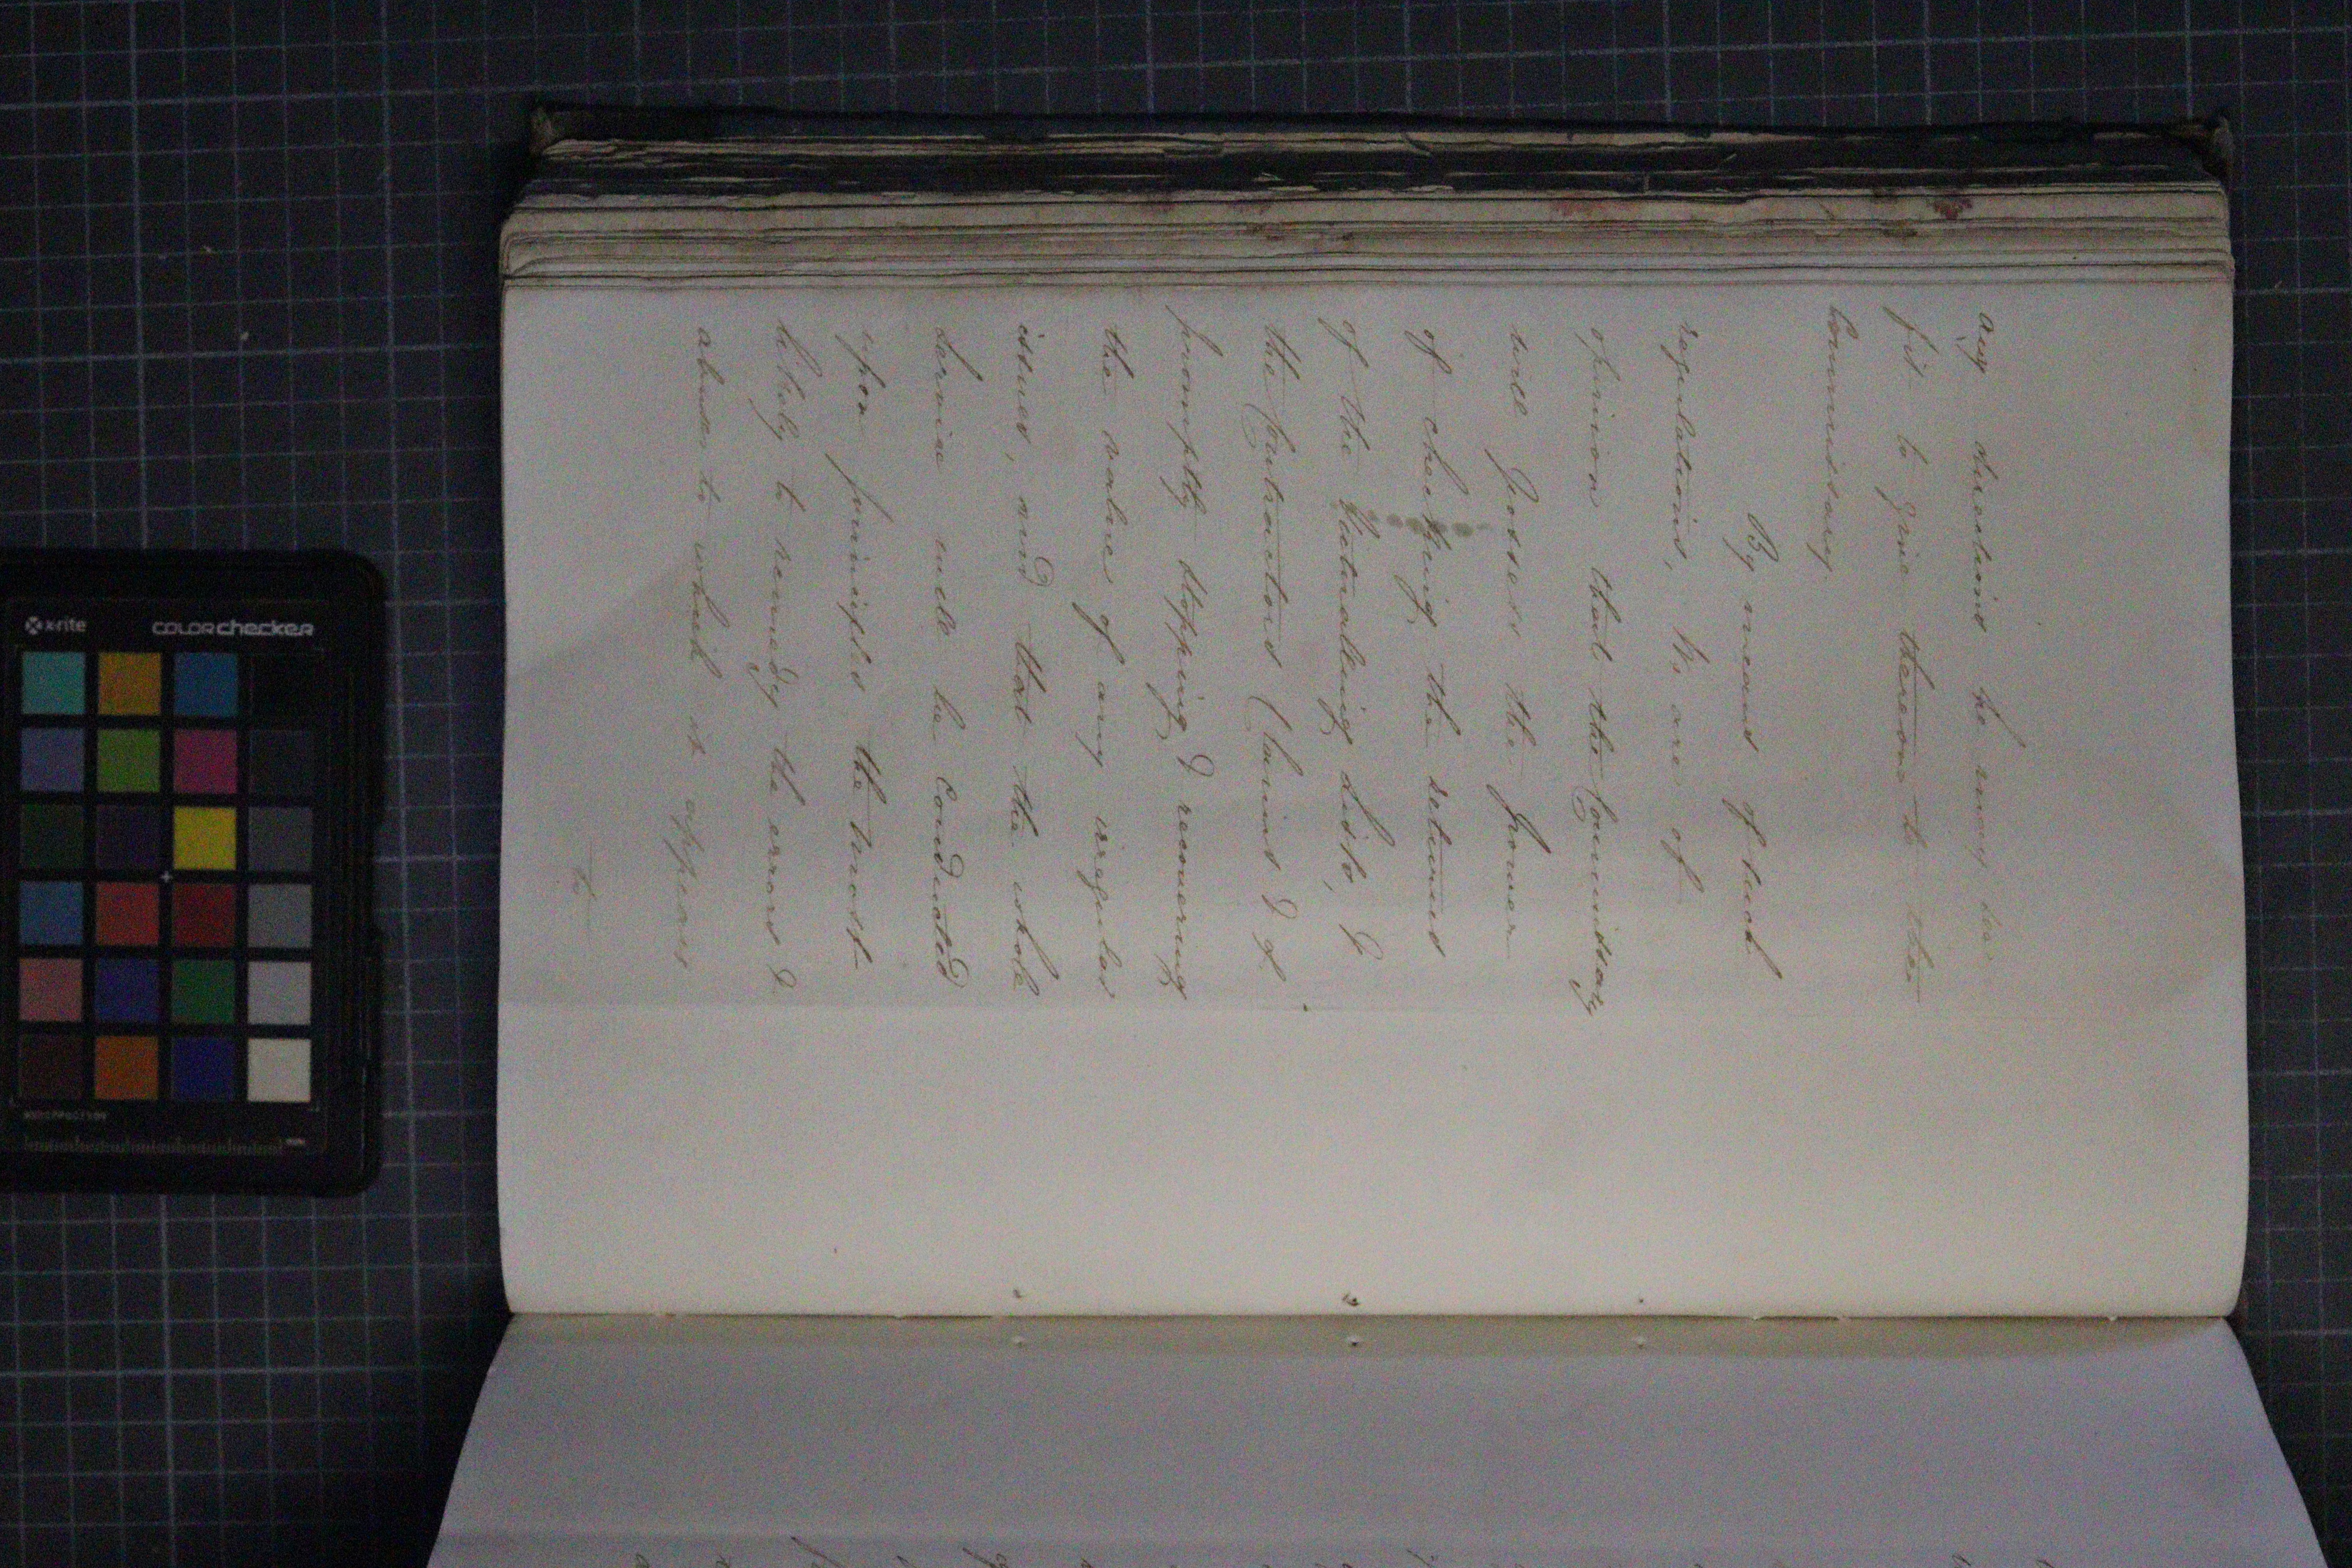 any directions he may see
fit to give thereon to the
Commissary.
By means of such
regulations, We are of
opinion that the Commissary
will possess the power
of checking the returns
of the Victualling Lists, &
the Contractors Claims & of
promptly stopping & recovering
the value of any irregular
issues, and that the whole
service will be conducted
upon principles the most
likely to remedy the errors &
abuses to which it appears
to
x-rite
colorchecker